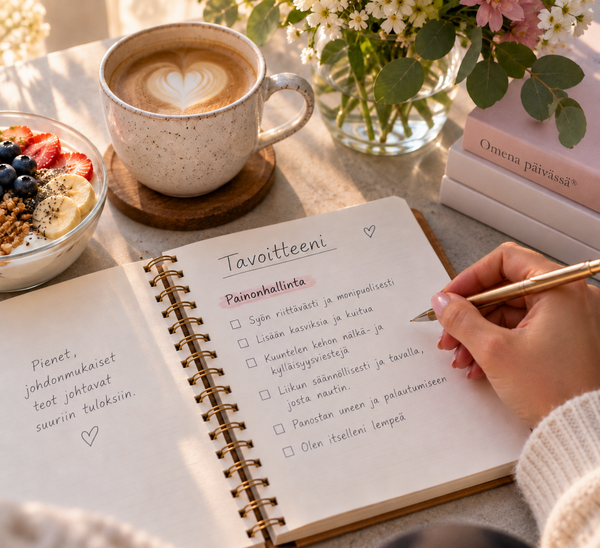 Pienet,
johdonmukaiset
teot johtavat
suuriin tuloksiin.
Tavoitteeni
Painonhallinta
Syön riittävästi ja monipuolisesti
Lisään kasviksia ja kuitua
Kuuntelen kehon nälkä- ja
kylläisyysviestejä
Liikun säännöllisesti ja tavalla,
josta nautin.
Panostan uneen ja palautumiseen
Olen itselleni lempeä
Omena päivässä®